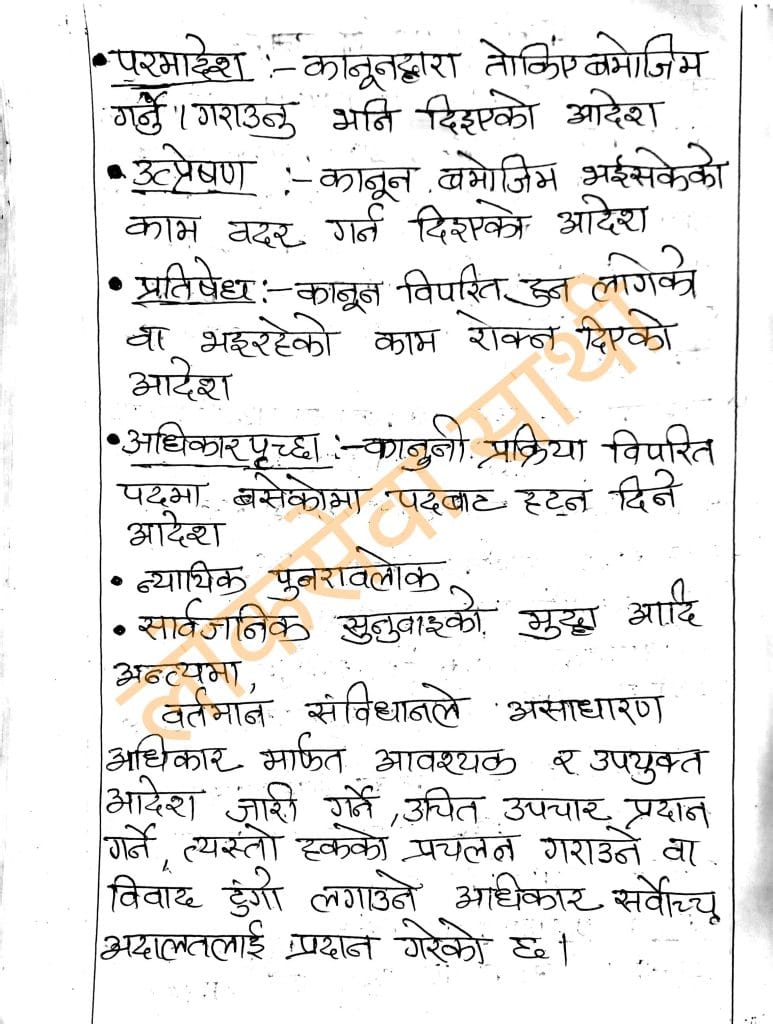 • परमादेश :– कानूनद्वारा तोकिए बमोजिम
गर्नु / गराउनु भनि दिइएको आदेश
• उत्प्रेषण :– कानून बमोजिम भईसकेको
काम वदर गर्न दिइएको आदेश
• प्रतिषेध :– कानून विपरित हुन लागेको
वा भइरहेको काम रोक्न दिएको
आदेश
• अधिकारपृच्छा :– कानुनी प्रक्रिया विपरित
पदमा बसेकोमा पदबाट हट्न दिने
आदेश
• न्यायिक पुनरावलोक
• सार्वजनिक सुनुवाइको मुद्दा आदि
अन्त्यमा,
वर्तमान संविधानले असाधारण
अधिकार मार्फत आवश्यक र उपयुक्त
आदेश जारी गर्ने, उचित उपचार प्रदान
गर्ने, त्यस्तो हकको प्रचलन गराउने वा
विवाद टुंगो लगाउने अधिकार सर्वोच्च
अदालतलाई प्रदान गरेको छ।
लोकसेवा साथी